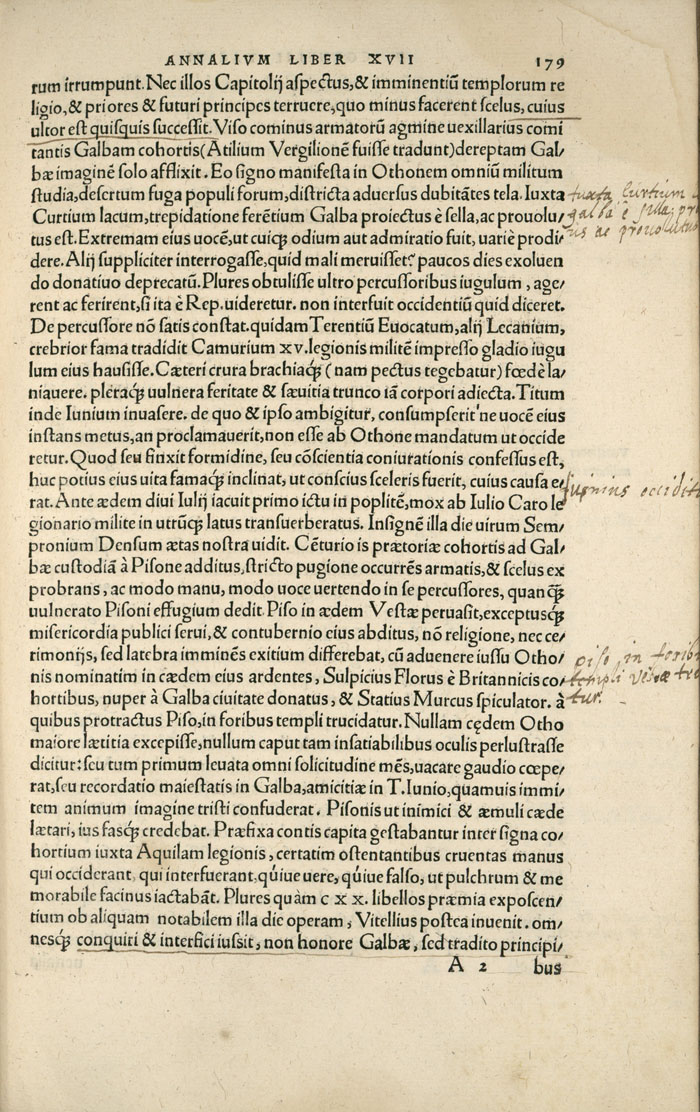 ANNALIVM LIBER XVII 179
rum irrumpunt. Nec illos Capitolij aspectus, & imminentiũ templorum re
ligio, & priores & futuri principes terruere, quo minus facerent scelus, cuius
ultor est quisquis successit. Viso cominus armatorũ agmine uexillarius comi
tantis Galbam cohortis (Atilium Vergilionẽ fuisse tradunt) dereptam Gal/
bæ imaginẽ solo afflixit. Eo signo manifesta in Othonem omniũ militum
studia, desertum fuga populi forum, districta aduersus dubitãtes tela. Iuxta
Curtium lacum, trepidatione ferẽtium Galba proiectus è sella, ac prouolu/
tus est. Extremam eius uocẽ, ut cuiq; odium aut admiratio fuit, uariè prodi/
dere. Alij suppliciter interrogasse, quid mali meruisset? paucos dies exoluen
do donatiuo deprecatũ. Plures obtulisse ultro percussoribus iugulum, age/
rent ac ferirent, si ita è Rep. uideretur. non interfuit occidentiũ quid diceret.
De percussore nõ satis constat. quidam Terentiũ Euocatum, alij Lecanium,
crebrior fama tradidit Camurium xv. legionis militẽ impresso gladio iugu
lum eius hausisse. Cæteri crura brachiaq; (nam pectus tegebatur) fœdè la/
niauere. pleraq; uulnera feritate & sæuitia trunco iã corpori adiecta. Titum
inde Iunium inuasere. de quo & ipso ambigitur, consumpserit'ne uocẽ eius
instans metus, an proclamauerit, non esse ab Othone mandatum ut occide
retur. Quod seu finxit formidine, seu cõscientia coniurationis confessus est,
huc potius eius uita famaq; inclinat, ut conscius sceleris fuerit, cuius causa e/
rat. Ante ædem diui Iulij iacuit primo ictu in poplitẽ, mox ab Iulio Caro le
gionario milite in utrũq; latus transuerberatus. Insignẽ illa die uirum Sem/
pronium Densum ætas nostra uidit. Cẽturio is prætoriæ cohortis ad Gal/
bæ custodiã à Pisone additus, stricto pugione occurrẽs armatis, & scelus ex
probrans, ac modo manu, modo uoce uertendo in se percussores, quanq;
uulnerato Pisoni effugium dedit. Piso in ædem Vestæ peruasit, exceptusq;
misericordia publici serui, & contubernio eius abditus, nõ religione, nec ce/
rimonijs, sed latebra imminẽs exitium differebat, cũ aduenere iussu Otho/
nis nominatim in cædem eius ardentes, Sulpicius Florus è Britannicis co/
hortibus, nuper à Galba ciuitate donatus, & Statius Murcus spiculator. à
quibus protractus Piso, in foribus templi trucidatur. Nullam cędem Otho
maiore lætitia excepisse, nullum caput tam insatiabilibus oculis perlustrasse
dicitur: seu tum primum leuata omni solicitudine mẽs, uacare gaudio cœpe/
rat, seu recordatio maiestatis in Galba, amicitiæ in T. Iunio, quamuis immi/
tem animum imagine tristi confuderat. Pisonis ut inimici & æmuli cæde
lætari, ius fasq; credebat. Præfixa contis capita gestabantur inter signa co/
hortium iuxta Aquilam legionis, certatim ostentantibus cruentas manus
qui occiderant, qui interfuerant, qúiue uere, qúiue falso, ut pulchrum & me
morabile facinus iactabãt. Plures quàm c x x. libellos præmia exposcen/
tium ob aliquam notabilem illa die operam, Vitellius postea inuenit. om/
nesq; conquiri & interfici iussit, non honore Galbæ, sed tradito principi/
A 2 bus
iuxta Curtium
galba è sella pr
us ac prouolutus
iunnius occidit
piso in forib
templi vestæ tr
tur.